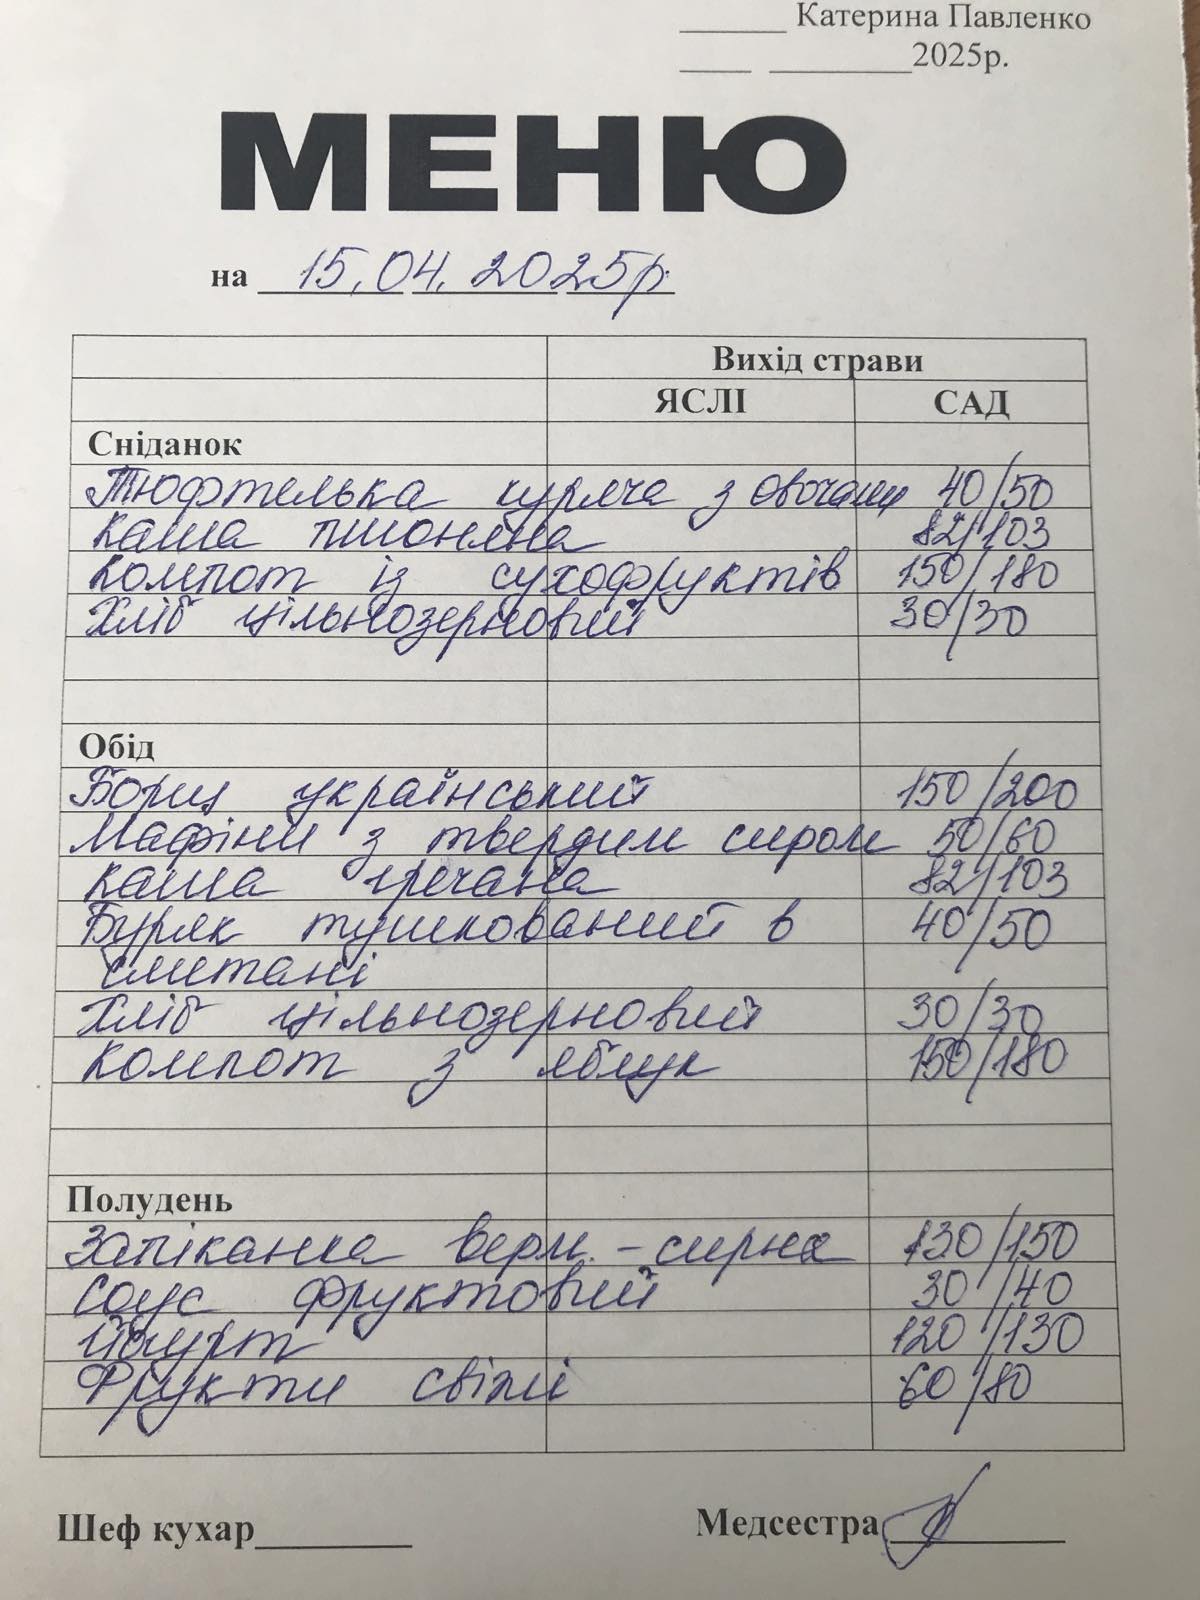 ______ Катерина Павленко
____ ________2025р.
МЕНЮ
на 15.04.2025р.
Вихід страви
ЯСЛІ САД
Сніданок
Тюфтелька куряча з овочами 40/50
Каша пшоняна 82/103
Компот із сухофруктів 150/180
Хліб цільнозерновий 30/30
Обід
Борщ український 150/200
Мафіни з твердим сиром 50/60
Каша гречана 82/103
Буряк тушкований в 40/50
сметані
Хліб цільнозерновий 30/30
Компот з яблук 150/180
Полудень
Запіканка верм.-сирна 130/150
Соус фруктовий 30/40
Йогурт 120/130
Фрукти свіжі 60/80
Шеф кухар________ Медсестра_________